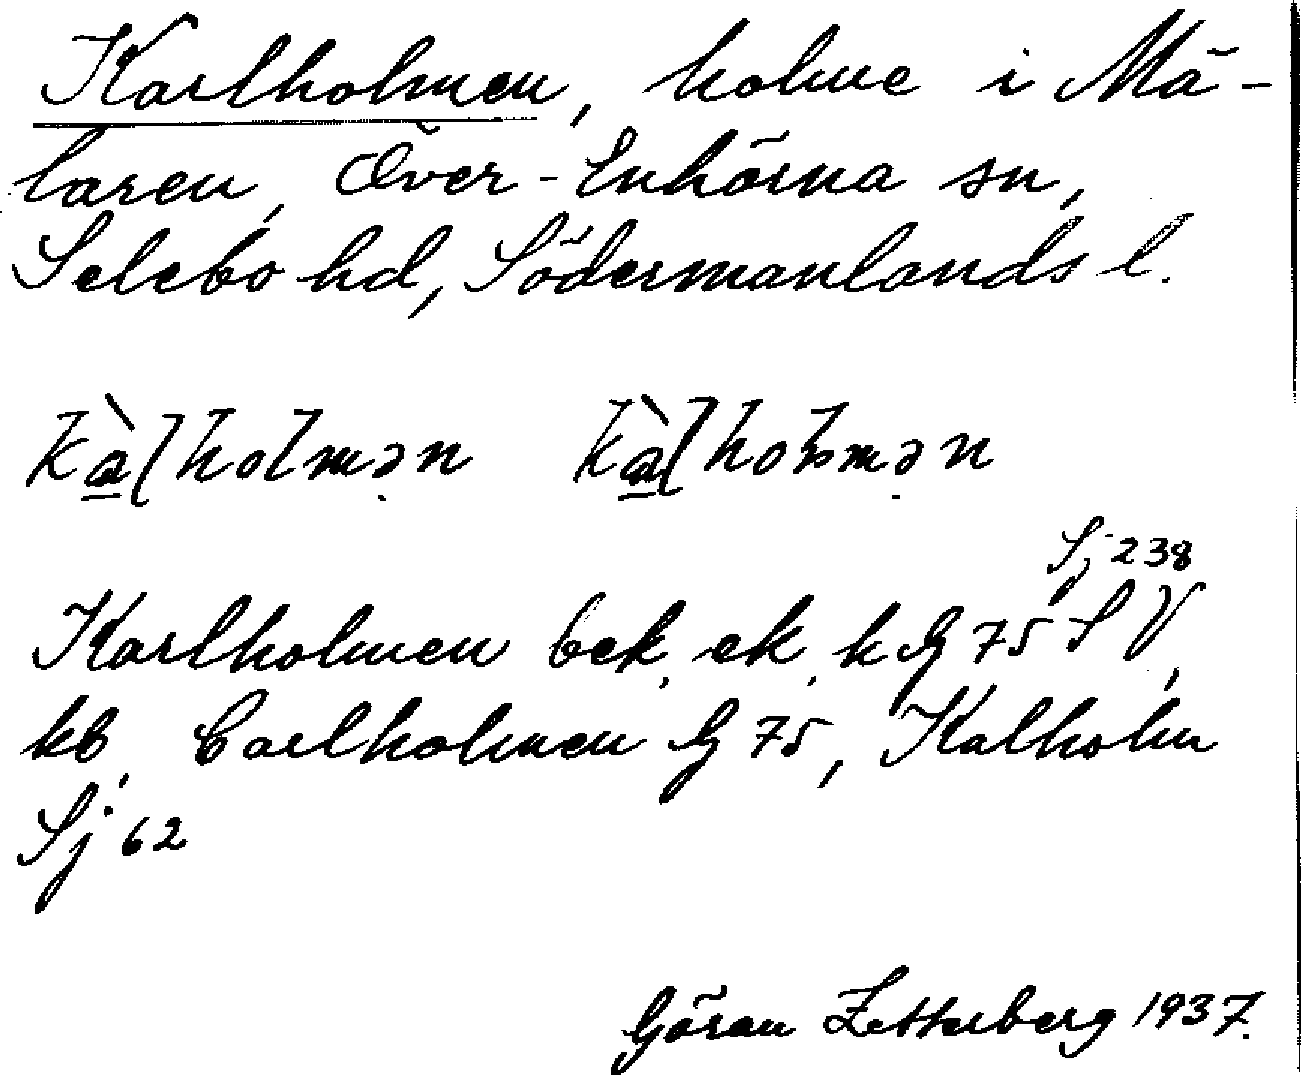 Karlholmen, holme i Mä-
laren, Över-Enhörna sn,
Selebo hd, Södermanlands l.
kàlholmən kàlholmən
Sj 238
Karlholmen bek, ek, k G 75 S V,
kb, Carlholmen G 75, Kalholm
Sj 62
Göran Zetterberg 1937.